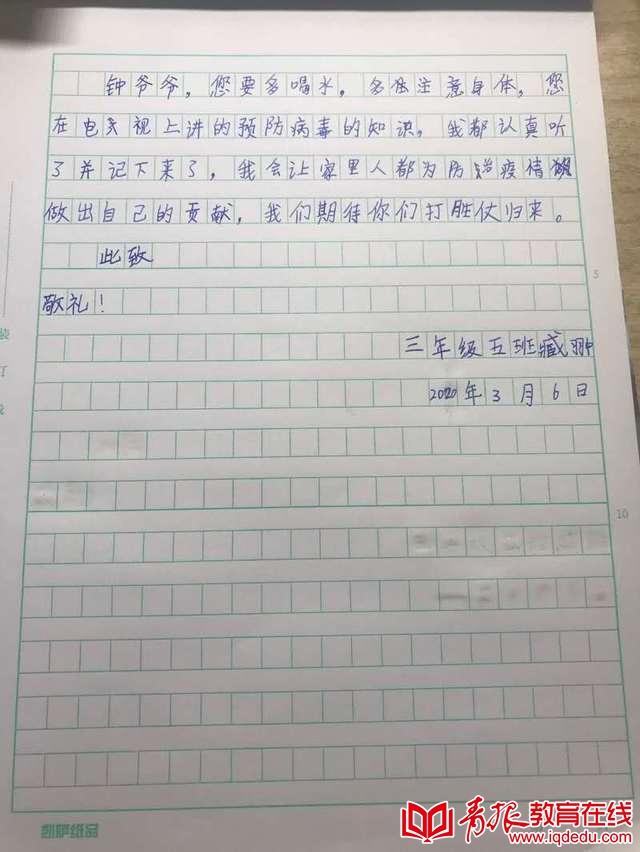 钟爷爷，您要多喝水，多注意身体，您
在电视上讲的预防病毒的知识，我都认真听
了并记下来了，我会让家里人都为防治疫情
做出自己的贡献，我们期待你们打胜仗归来。
此致
敬礼！
三年级五班臧翀
2020年3月6日
5
10
装
订
凯萨纸品
青报教育在线
www.iqdedu.com